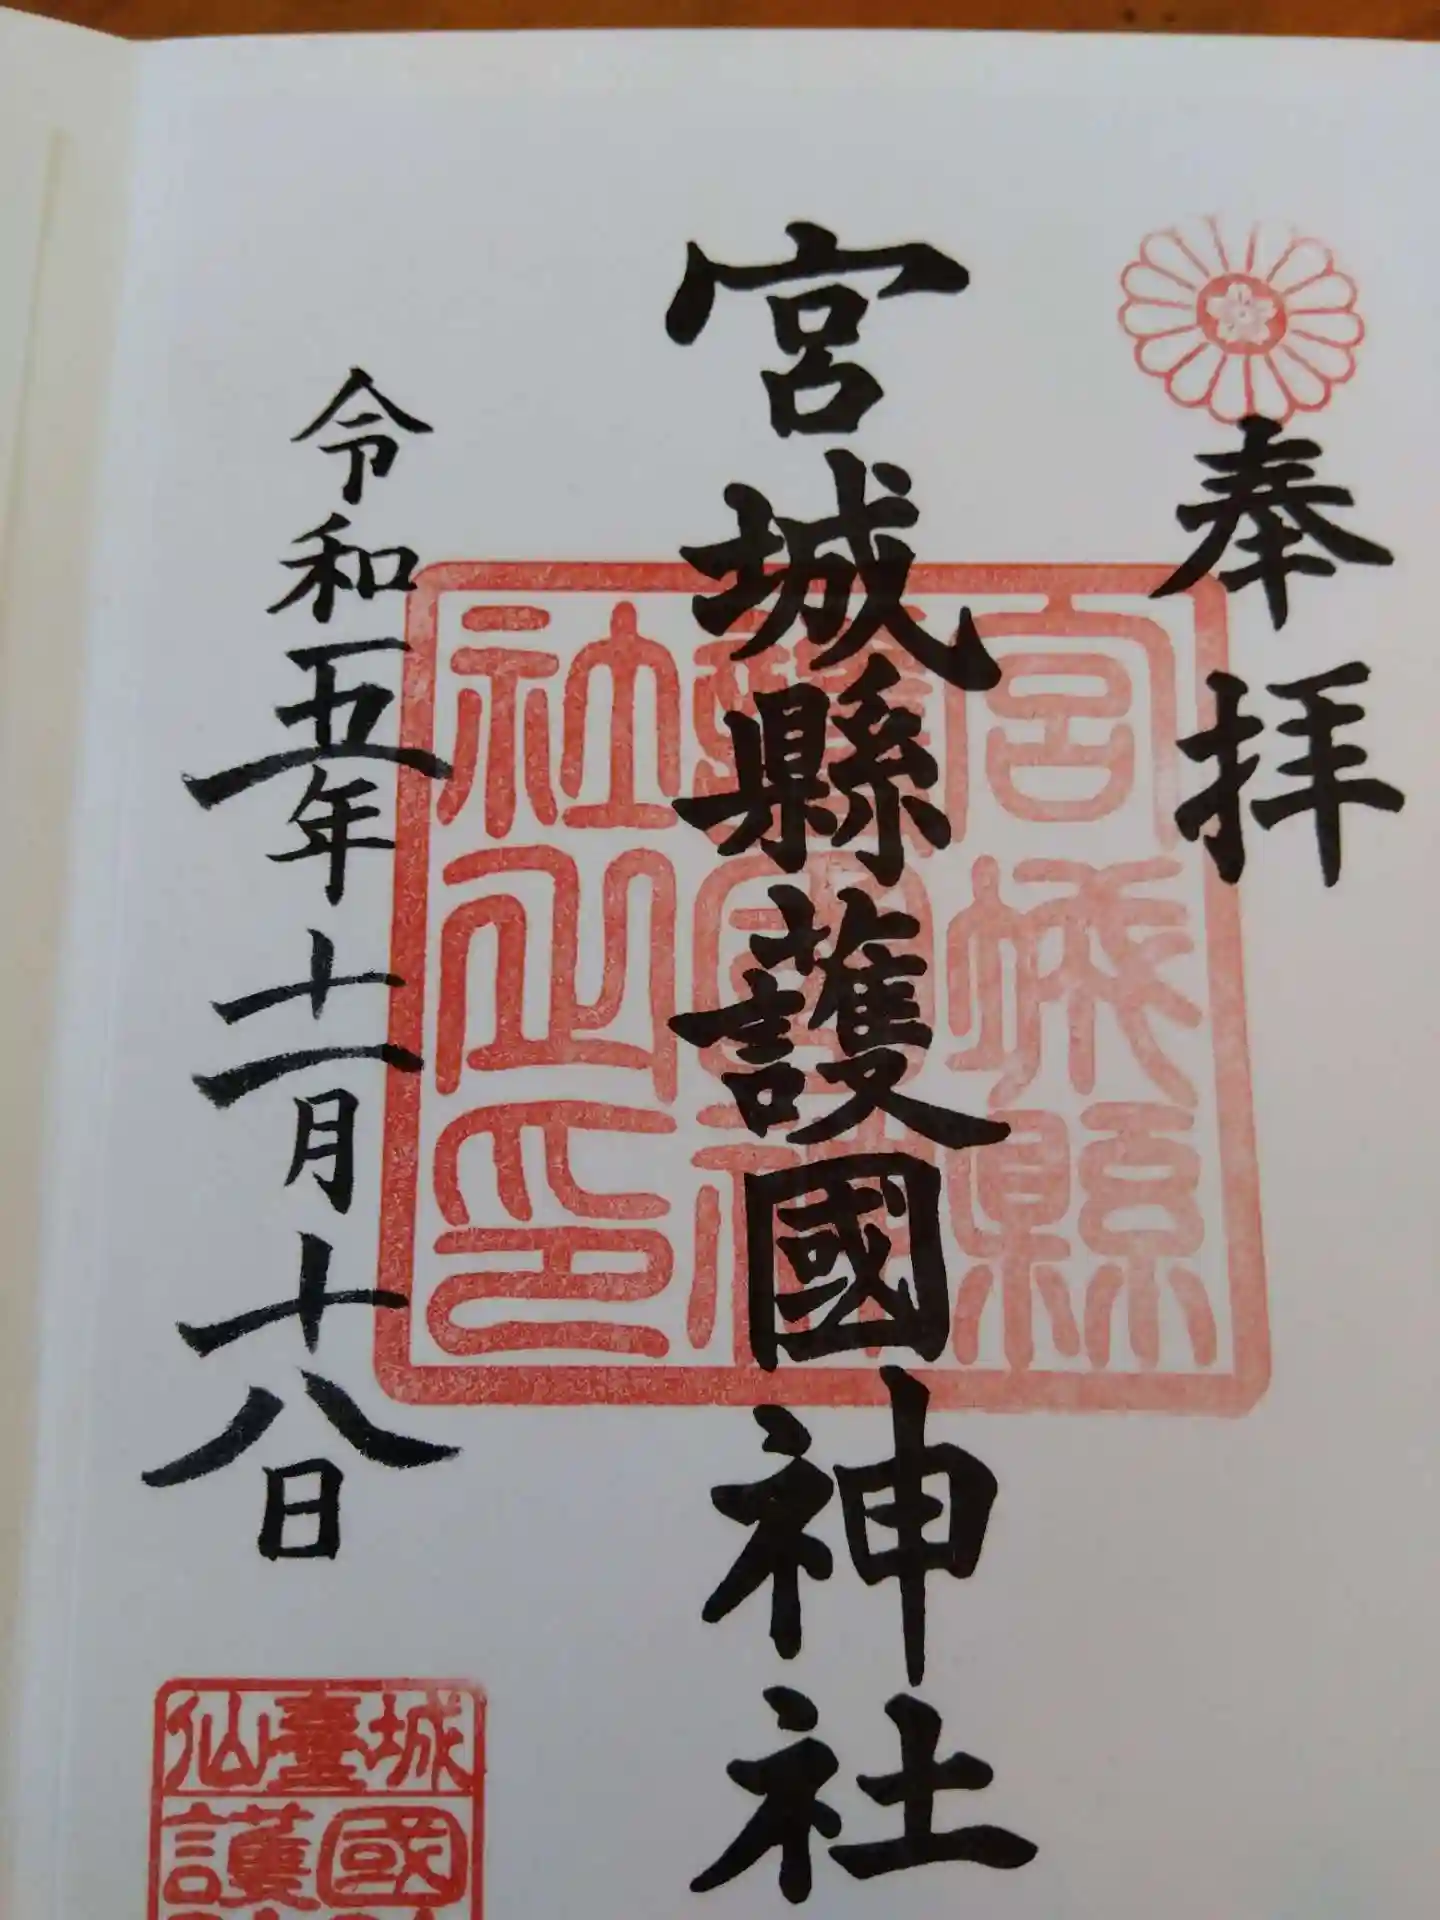 奉拝
宮城縣護國神社
宮城縣
護國神
社之印
令和五年十一月十八日
仙臺城
護國